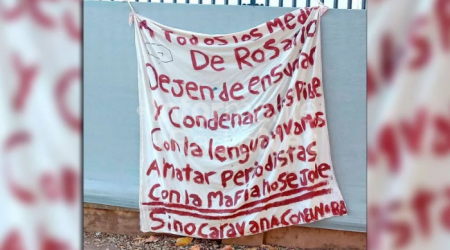 A Todos los Med
De Rosario
Dejen de ensuciar
y Condenar a los Pibe
Con la lengua vamos
A matar periodistas
Con la Mafia no se Jode
Sino Caravana